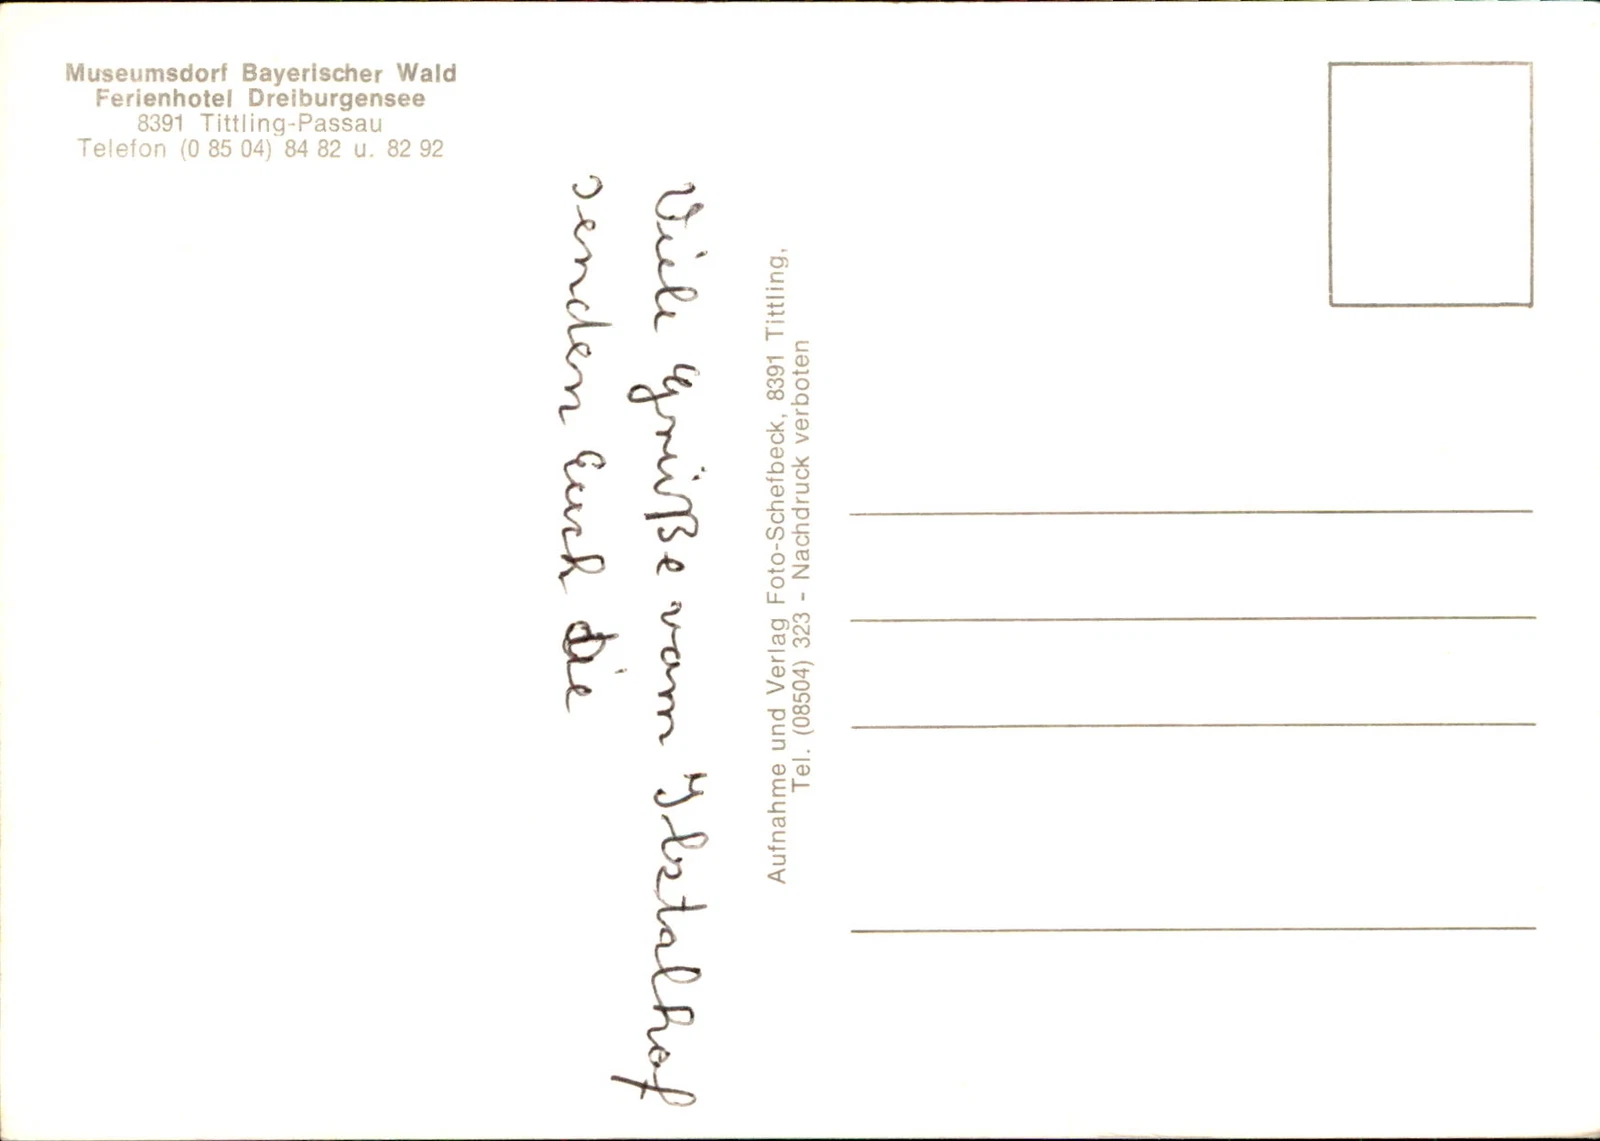 Museumsdorf Bayerischer Wald
Ferienhotel Dreiburgensee
8391 Tittling-Passau
Telefon (0 85 04) 84 82 u. 82 92
Viele Grüße vom Ilztalhof
senden Euch die
Aufnahme und Verlag Foto-Schefbeck, 8391 Tittling,
Tel. (08504) 323 - Nachdruck verboten